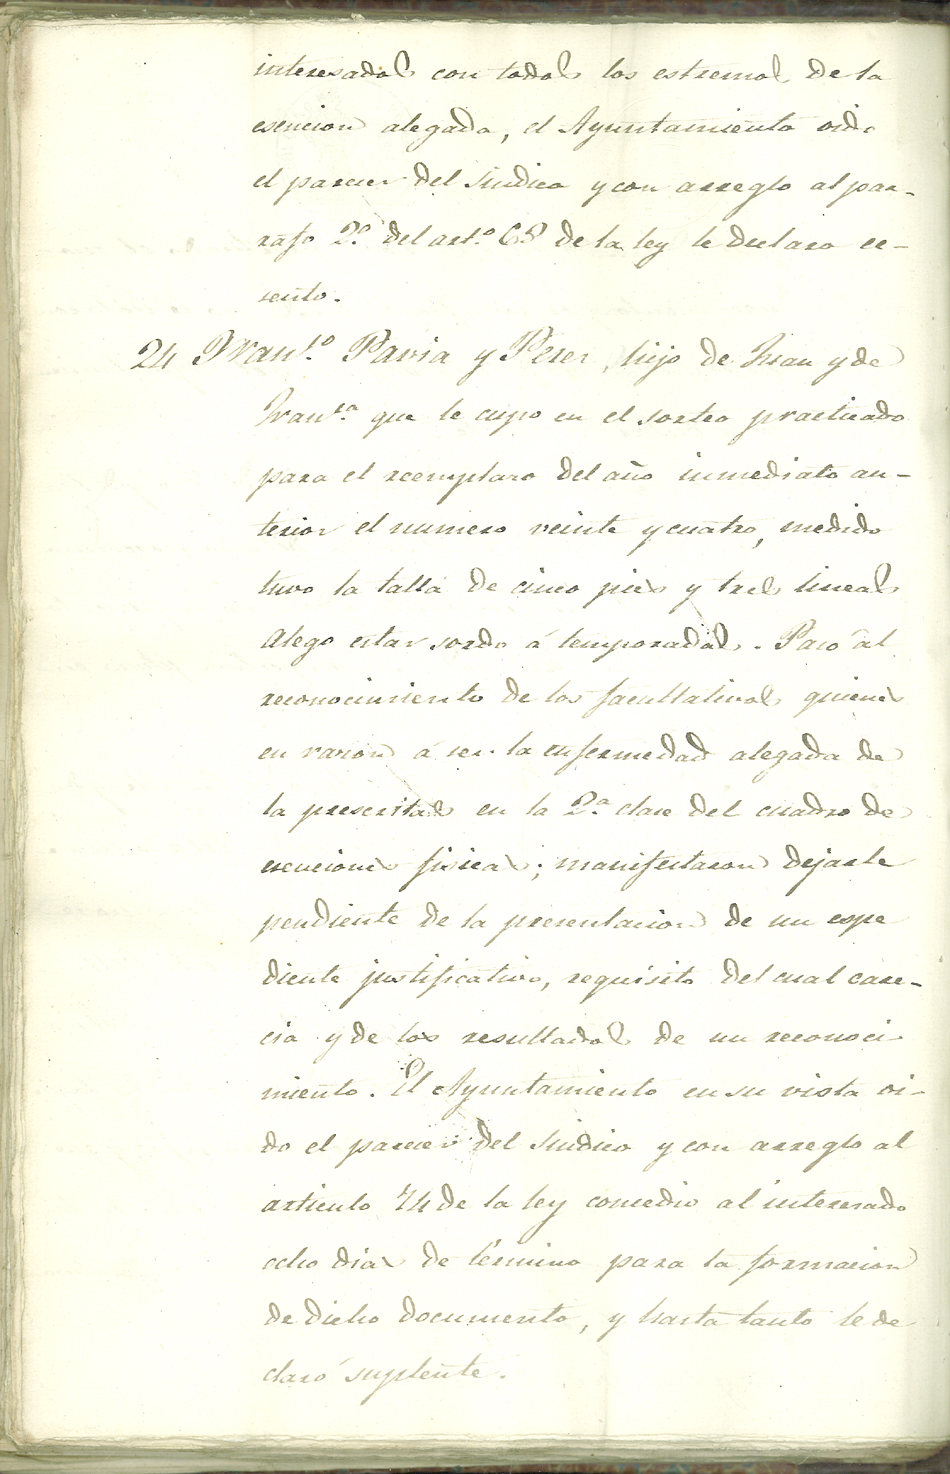 interesados con todos los estremos de la
esencion alegada, el Ayuntamiento oido
el parecer del Sindico y con arreglo al par-
rafo 2.º del art.º 63 de la ley le declaro ec-
sento.
24 Fran.co Pavia y Peres, hijo de Juan y de
Fran.ca que le cupo en el sorteo practicado
para el reemplazo del año inmediato an-
terior el numero veinte y cuatro, medido
tuvo la talla de cinco pies y tres lineas
Alego estar sordo á temporadas. Pasó al
reconocimiento de los facultativos quienes
en razon á ser la enfermedad alegada de
la prescritas en la 2.ª clase del cuadro de
esenciones fisicas; manifestaron dejarle
pendiente de la presentacion de un espe
diente justificativo, requisito del cual care-
cia y de los resultados de un reconoci-
miento. El Ayuntamiento en su vista oi-
do el parecer del Sindico y con arreglo al
articulo 74 de la ley comedio al interesado
ocho dias de término para la formacion
de dicho documento, y hasta tanto le de
claró suplente.